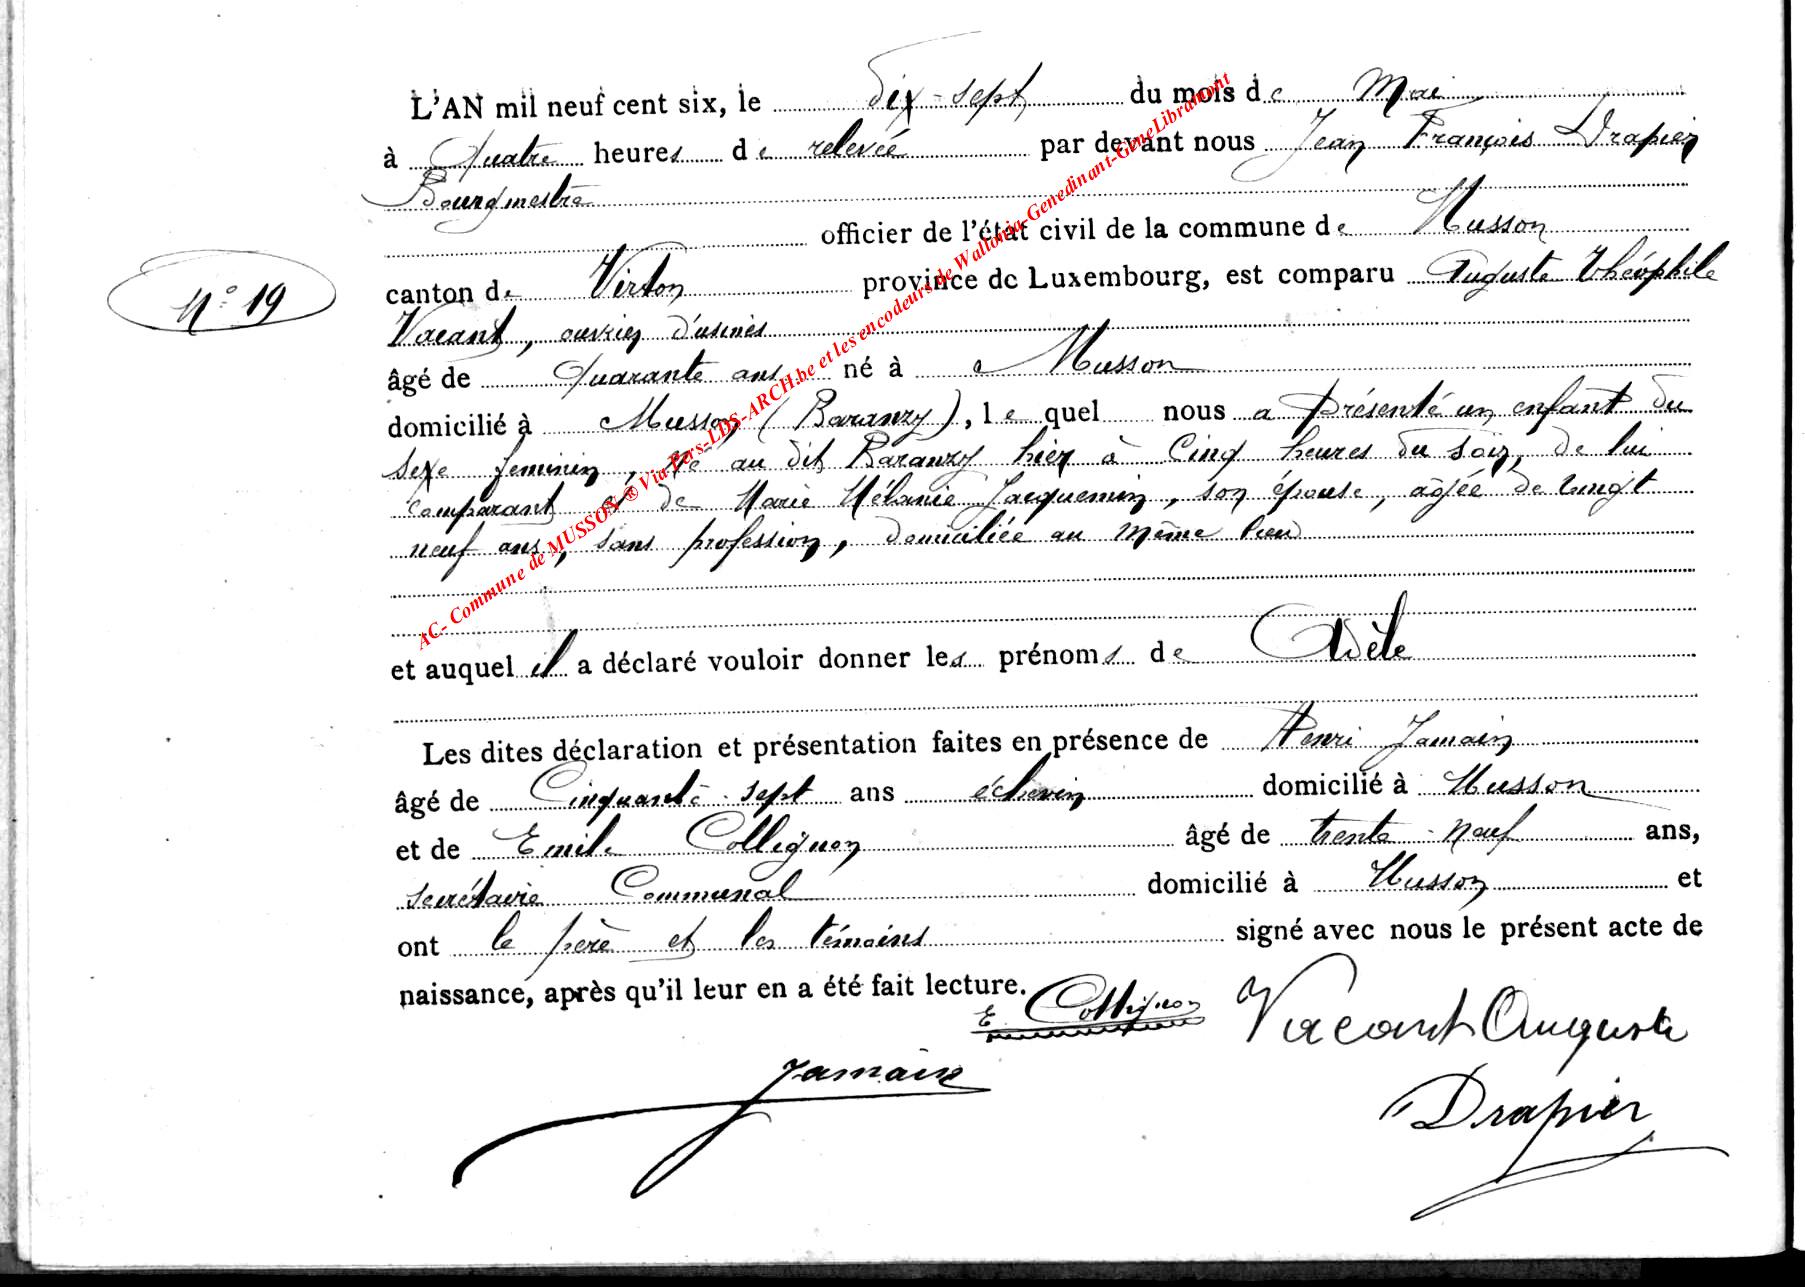 L'AN mil neuf cent six, le dix-sept du mois de Mai
à Quatre heures de relevée par devant nous Jean François Drapier
Bourgmestre
officier de l'état civil de la commune de Musson
N° 19
canton de Virton province de Luxembourg, est comparu Auguste Théophile
Vacant, ouvrier d'usines
âgé de Quarante ans né à Musson
domicilié à Musson (Baranzy), lequel nous a présenté un enfant du
sexe feminin, né au dit Baranzy hier à Cinq heures du soir, de lui
comparant et de Marie Mélanie Jacquemin, son épouse, âgée de vingt
neuf ans, sans profession, domiciliée au même lieu
et auquel il a déclaré vouloir donner les prénoms de Adèle
Les dites déclaration et présentation faites en présence de Henri Jamain
âgé de Cinquante-sept ans échevin domicilié à Musson
et de Emile Collignon âgé de trente-neuf ans,
secrétaire Communal domicilié à Musson et
ont le père et les témoins signé avec nous le présent acte de
naissance, après qu'il leur en a été fait lecture.
E Collignon
Vacant Auguste
Jamain
Drapier
AC- Commune de MUSSON ® Via Pers-LDS-ARCH.be et les encodeurs de Wallonia-Genedinant-GeneLibramont